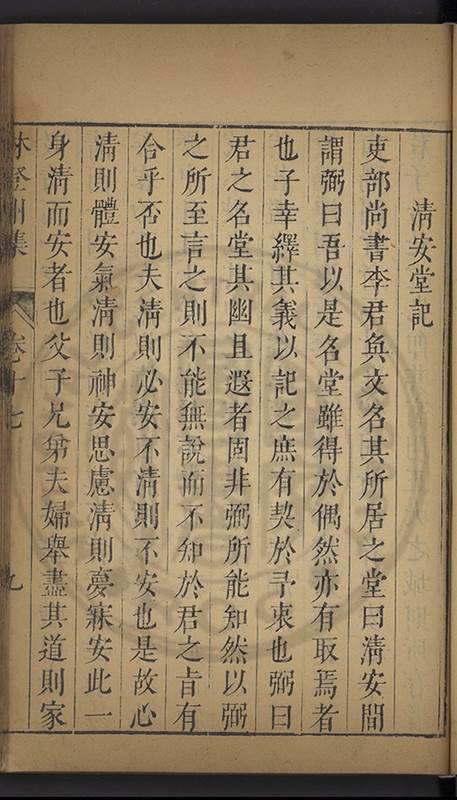 清安堂記
吏部尚書李君奐文名其所居之堂曰清安間
謂弼曰吾以是名堂雖得於偶然亦有取焉者
也子幸繹其義以記之庶有契於予衷也弼曰
君之名堂其幽且遐者固非弼所能知然以弼
之所至言之則不能無說而不知於君之旨有
合乎否也夫清則必安不清則不安也是故心
清則體安氣清則神安思慮清則夢寐安此一
身清而安者也父子兄弟夫婦舉盡其道則家
林登州集 卷十七 九